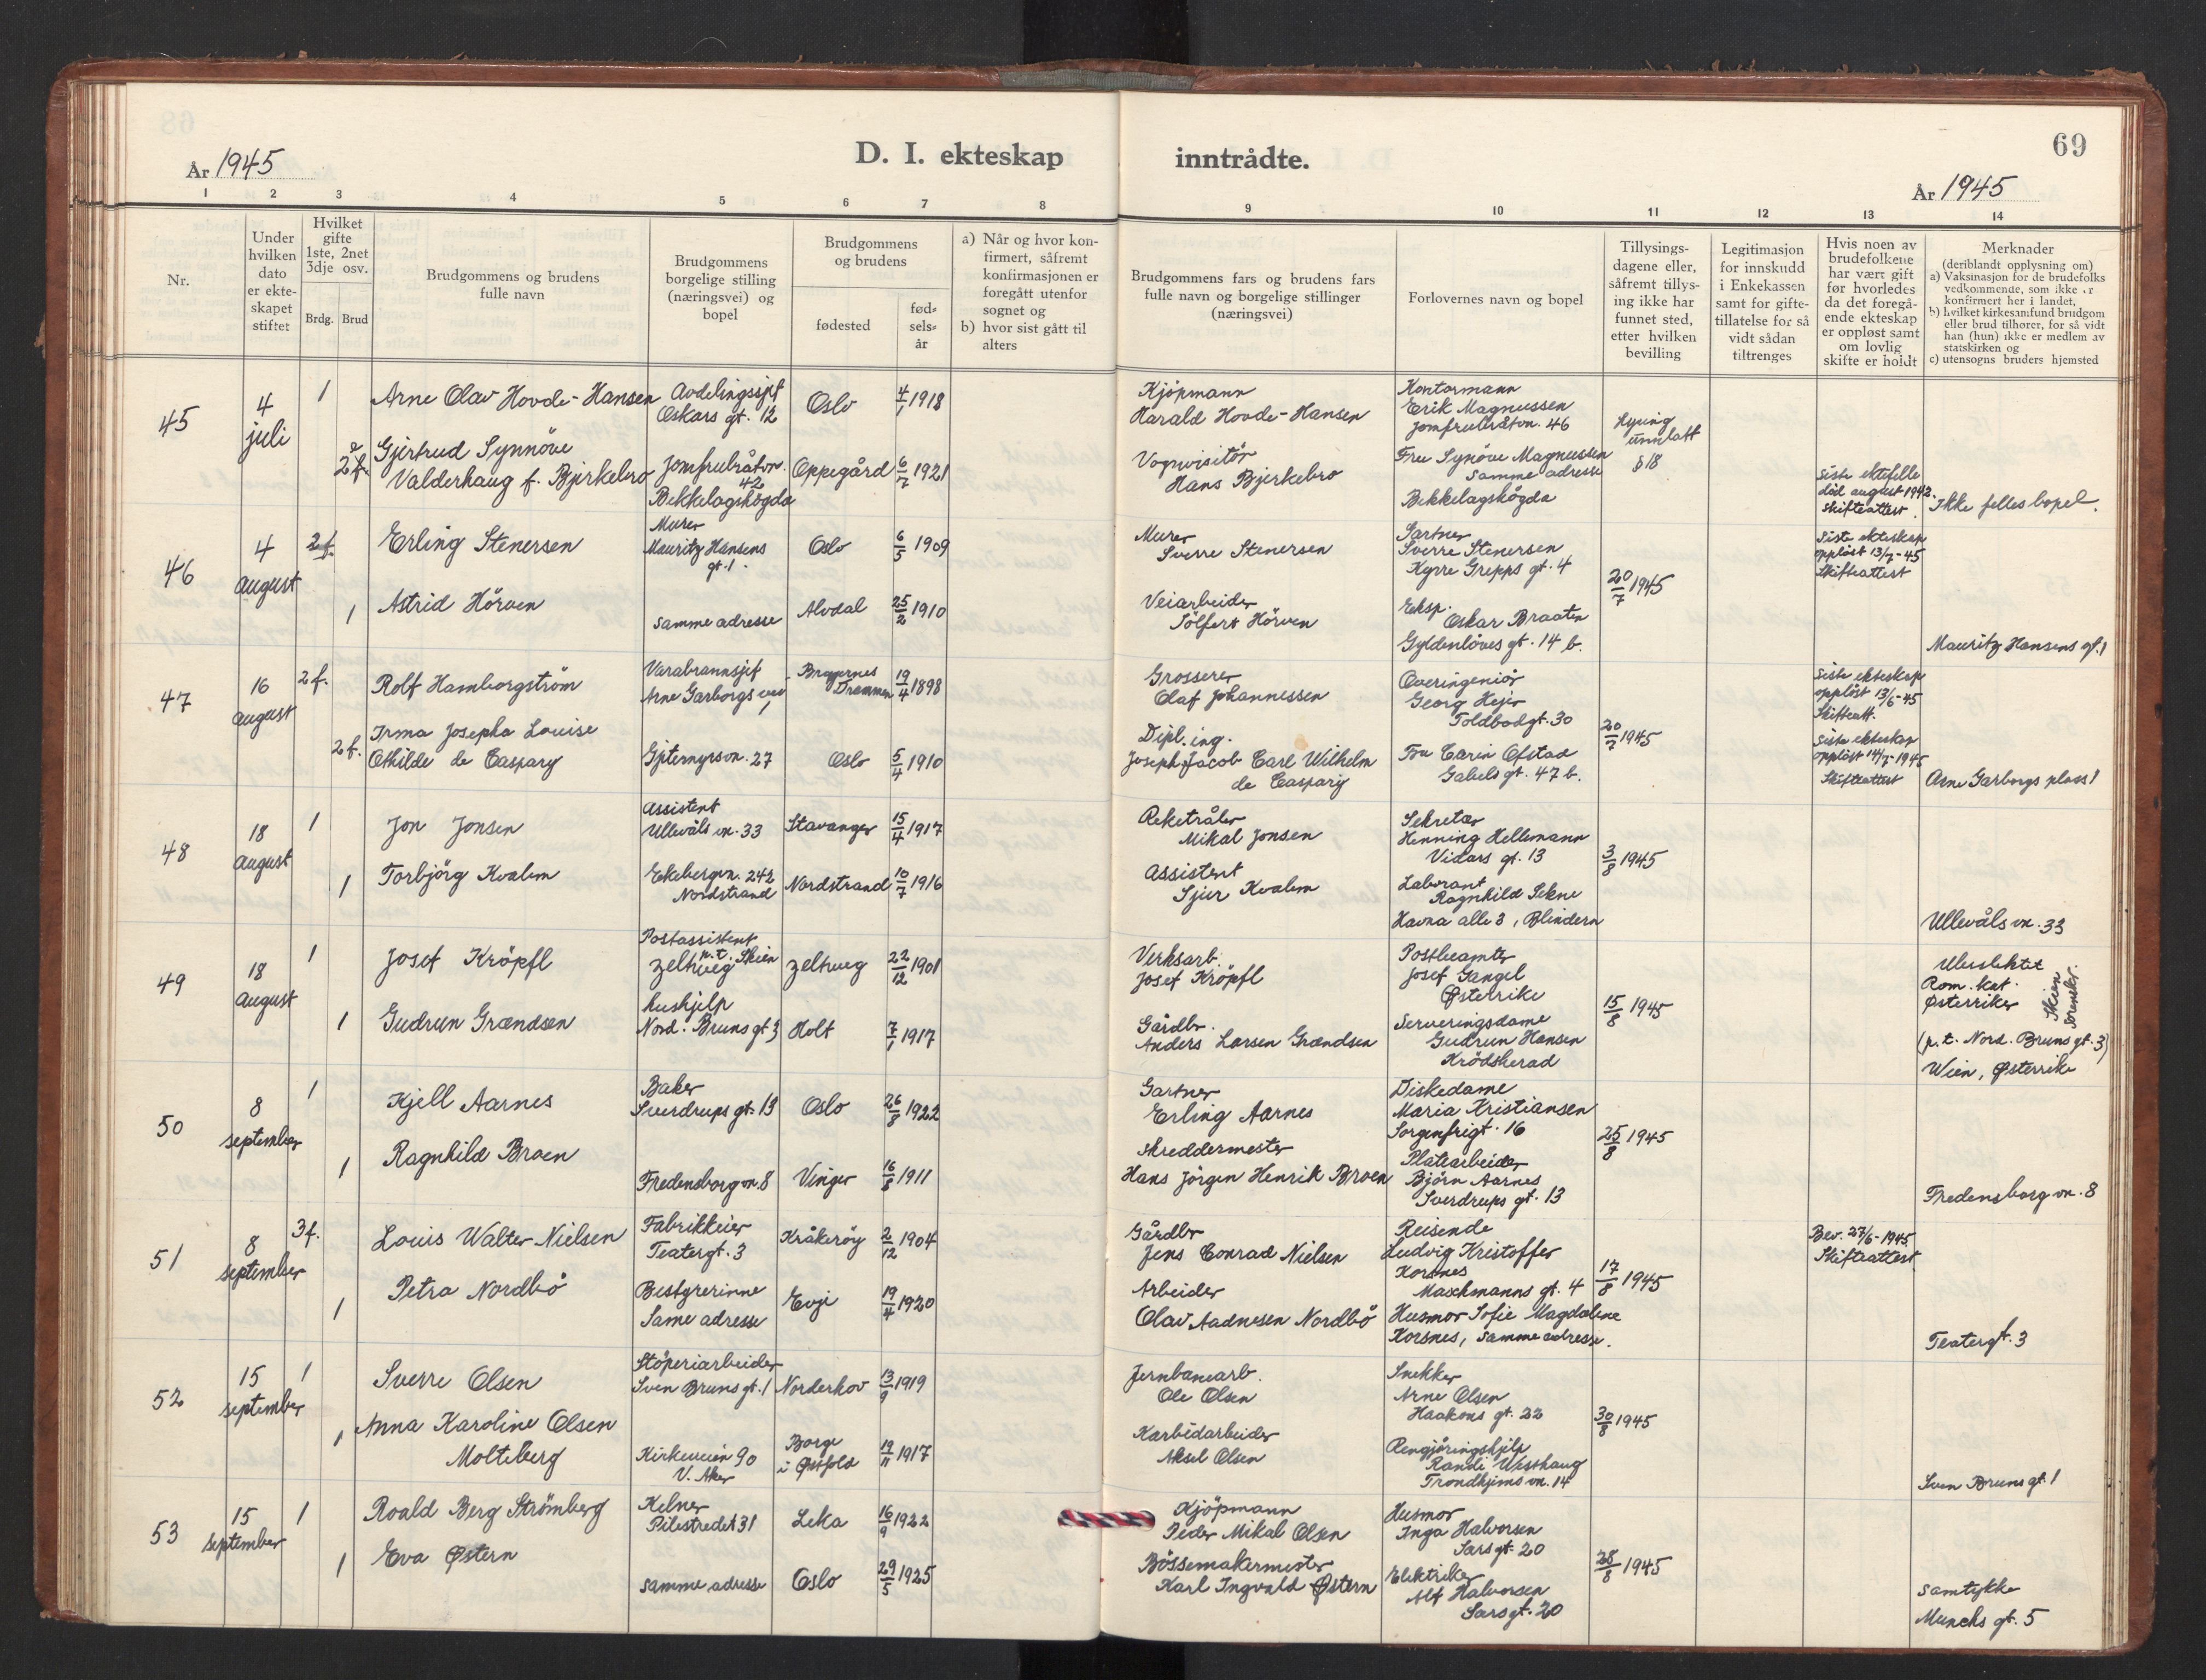 69
D. I. ekteskap inntrådte.
År 1945
År 1945
1 2 3 4 5 6 7 8 9 10 11 12 13 14
Nr.
Under hvilken dato er ekteskapet stiftet
Hvilket gifte 1ste, 2net 3dje osv.
Brdg. Brud
Brudgommens og brudens fulle navn
Brudgommens borgelige stilling (næringsvei) og bopel
Brudgommens og brudens
fødested
fødselsår
a) Når og hvor konfirmert, såfremt konfirmasjonen er foregått utenfor sognet og
b) hvor sist gått til alters
Brudgommens fars og brudens fars fulle navn og borgelige stillinger (næringsvei)
Forlovernes navn og bopel
Tillysingsdagene eller, såfremt tillysing ikke har funnet sted, etter hvilken bevilling
Legitimasjon for innskudd i Enkekassen samt for giftetillatelse for så vidt sådan tiltrenges
Hvis noen av brudefolkene har vært gift før hvorledes da det foregående ekteskap er oppløst samt om lovlig skifte er holdt
Merknader
(deriblandt opplysning om)
a) Vaksinasjon for de brudefolks vedkommende, som ikke er konfirmert her i landet,
b) hvilket kirkesamfund brudgom eller brud tilhører, for så vidt han (hun) ikke er medlem av statskirken og
c) utensogns bruders hjemsted
45
4 juli
1
Arne Olav Hovde-Hansen
Avdelingssjef
Oskars gt. 12
Oslo
4/1 1918
Kjöpmann
Harald Hovde-Hansen
Kontormann
Erik Magnussen
Jomfrubråtvn. 46
2 f.
Gjertrud Synnöve
Valderhaug f. Bjerkebro
Jomfrubråtvn. 42
Bekkelagshögda
Oppegård
6/7 1921
Vognvisitör
Hans Bjerkebro
Fru Synöve Magnussen
samme adresse
Bekkelagshögda
unnlatt
§ 18
Siste ektefelle
död august 1942.
Skifteattest.
Ikke felles bopel.
46
4 august
2 f.
Erling Stenersen
Murer
Mauritz Hansens
gt. 1.
Oslo
6/5 1909
Murer
Sverre Stenersen
Gartner
Sverre Stenersen
Kyrre Grepps gt. 4
20/7 1945
Siste ekteskap
opplöst 13/7-45
Skifteattest
1
Astrid Hörven
samme adresse
Alvdal
25/2 1910
Veiarbeider
Sölfert Hörven
Eksp.
Oskar Braaten
Gyldenlöves gt. 14 b.
Mauritz Hansens gt. 1
47
16 august
2 f.
Rolf Hamborgström
Varabrannsjef
Arne Garborgs vei 1
Bragernes
Drammen
19/4 1898
Grosserer
Olaf Johannessen
Overingeniör
Georg Hejer
Toldbodgt. 30
20/7 1945
Siste ekteskap
opplöst 13/6-45
Skifteatt.
2 f.
Irma Josepha Louise
Othilde de Caspary
Gjetemyrsvn. 27
Oslo
5/4 1910
Dipl. ing.
Joseph Jacob Carl Wilhelm
de Caspary
Fru Carin Ofstad
Gabels gt. 47 b.
Siste ekteskap
opplöst 14/7-1945
Skifteattest
Arne Garborgs plass 1
48
18 august
1
Jon Jonsen
Assistent
Ullevåls vn. 33
Stavanger
15/4 1917
Reketråler
Mikal Jonsen
Sekretær
Henning Hellemann
Vidars gt. 13
3/8 1945
1
Torbjörg Kvalem
Ekebergvn. 242
Nordstrand
Nordstrand
10/7 1916
Assistent
Sjur Kvalem
Laborant
Ragnhild Sekne
Havna alle 3, Blindern
Ullevåls vn. 33
49
18 august
1
Josef Kröpfl
Postassistent
p.t. Skien
Zeltweg
Zeltweg
22/12 1901
Verksarb.
Josef Kröpfl
Postbeamter
Josef Gangel
Østerrike
15/8 1945
Rom. kat.
Østerriker
1
Gudrun Grændsen
hushjelp
Nord. Bruns gt 3
Holt
7/1 1917
Gårdbr.
Anders Larsen Grændsen
Serveringsdame
Gudrun Hansen
Krödsherad
(p.t. Nord. Bruns gt. 3)
Wien, Østerrike
50
8 september
1
Kjell Aarnes
Baker
Sverdrups gt. 13
Oslo
26/8 1922
Gartner
Erling Aarnes
Diskedame
Maria Kristiansen
Sorgenfrigt. 16
25/8 1945
1
Ragnhild Broen
Fredensborgvn. 8
Vinger
16/8 1911
Skreddermester
Hans Jörgen Henrik Broen
Platearbeider
Björn Aarnes
Sverdrups gt. 13
Fredensborg vn. 8
51
8 september
3 f.
Louis Walter Nielsen
Fabrikkeier
Teatergt. 3
Kråkeröy
2/12 1904
Gårdbr
Jens Conrad Nielsen
Reisende
Ludvig Kristoffer
Korsnes
Maschmanns gt. 4
17/8 1945
Bev. 27/6-1945
Skifteattest
1
Petra Nordbö
Bestyrerinne
Same adresse
Evje
19/4 1920
Arbeider
Olav Aadnesen Nordbö
Husmor Sofie Magdalene
Korsnes, samme adresse.
Teatergt. 3
52
15 september
1
Sverre Olsen
Stöperiarbeider
Sven Bruns gt. 1
Norderhov
13/9 1919
Jernbanearb.
Ole Olsen
Snekker
Arne Olsen
Haakons gt. 22
30/8 1945
1
Anna Karoline Olsen
Molteberg
Kirkeveien 90
V. Aker
Borge
i Østfold
19/11 1917
Karbidarbeider
Aksel Olsen
Rengjöringshjelp
Randi Westhaug
Trondhjems vn. 14
Sven Bruns gt. 1
53
15 september
1
Roald Berg Strömberg
Kelner
Pilestredet 31
Leka
16/9 1922
Kjöpmann
Peder Mikal Olsen
Husmor
Inga Halvorsen
Sars gt. 20
28/8 1945
1
Eva Østern
samme adresse
Oslo
29/5 1925
Bössemakermester
Karl Ingvald Østern
Elektriker
Alf Halvorsen
Sars gt. 20
samtykke
Munchs gt. 5